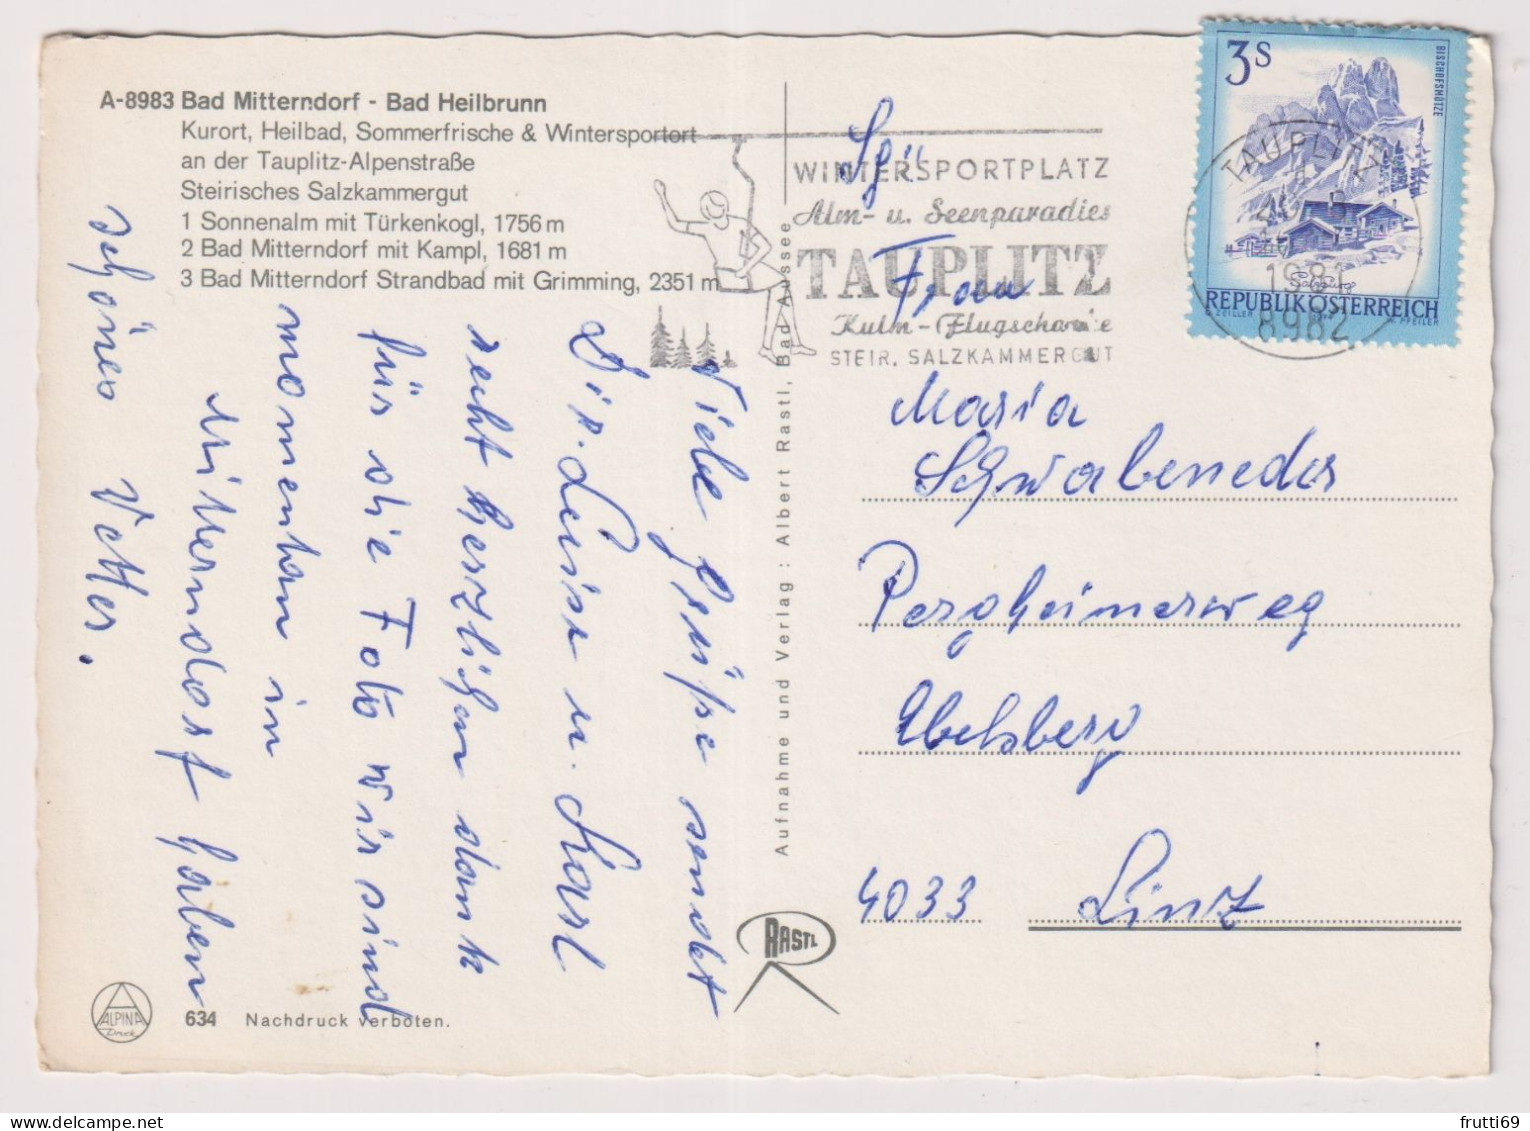 A-8983 Bad Mitterndorf - Bad Heilbrunn
Kurort, Heilbad, Sommerfrische & Wintersportort
an der Tauplitz-Alpenstraße
Steirisches Salzkammergut
1 Sonnenalm mit Türkenkogl, 1756 m
2 Bad Mitterndorf mit Kampl, 1681 m
3 Bad Mitterndorf Strandbad mit Grimming, 2351 m
WINTERSPORTPLATZ
Alm- u. Seenparadies
TAUPLITZ
Kulm-Flugschanze
STEIR. SALZKAMMERGUT
3S
BISCHOFSMÜTZE
Salzburg
REPUBLIK ÖSTERREICH
ZEILLER
PFEILER
TAUPLITZ
1981
8982
Frau
Maria
Schwabeneder
Pergheimerweg
Ebelsberg
4033 Linz
Viele Grüße sendet
Dir Luise u. Karl
recht herzlichen dank
für die Foto wir sind
momentan in
Mitterndorf haben
schönes Vetter.
Aufnahme und Verlag : Albert Rastl, Bad Aussee
RASTL
ALPINA
Druck
634 Nachdruck verboten.
frutti69